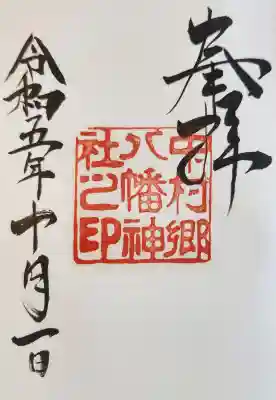 奉拝
村郷
八幡神
社之印
令和五年十月一日